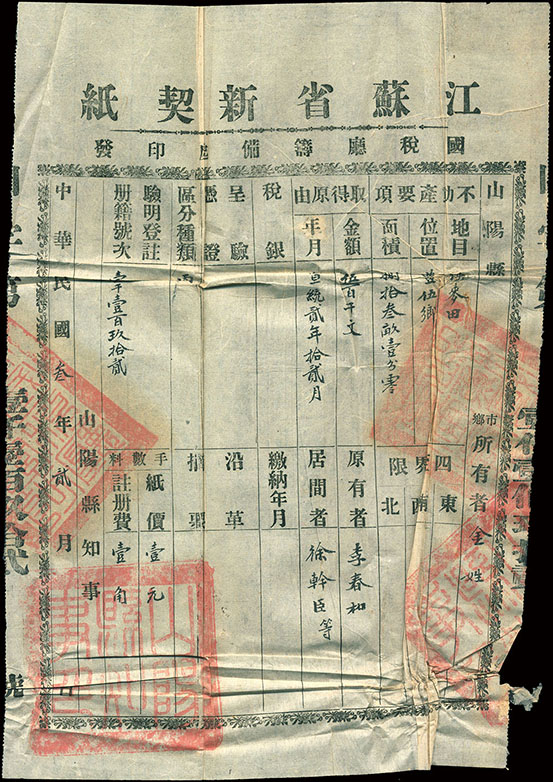 江蘇省新契紙
國稅廳籌備處印發
山陽縣 市鄉 所有者 金姓
不動產要項 地目 麥田 四界 東
位置 伍鄉 南
面積 拾叁畝壹分零 限 北
取得原由 金額 伍百千文 原有者 李春和
年月 宣統貳年拾貳月 居間者 徐幹臣等
稅銀 繳納年月
呈驗憑證 沿革
區分種類 摘
驗明登註 手數料 紙價 壹元
册籍號次 壹百玖拾貳 註册費 壹角
中華民國叁年貳月 山陽縣知事